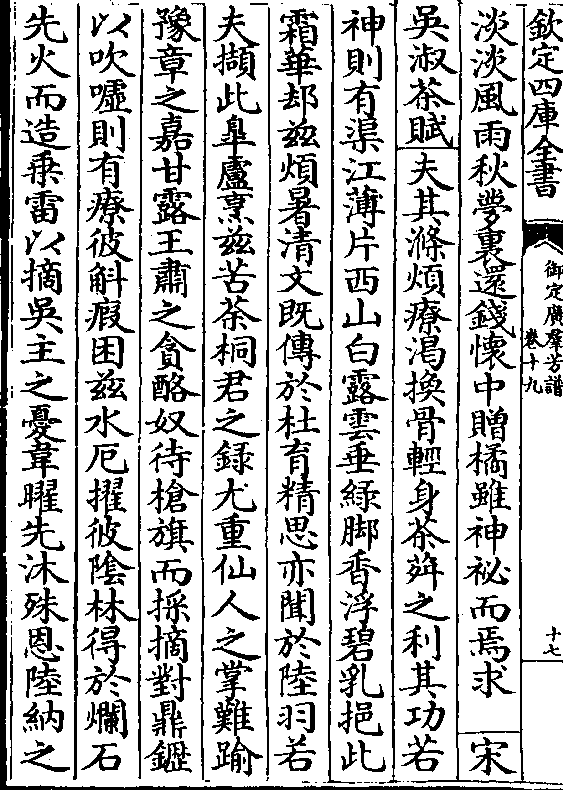 欽定四庫全書
御定廣羣芳譜
卷十九
十七
淡淡風雨秋夢裏還錢懷中贈橘雖神祕而焉求　宋
吳淑茶賦　夫其滌煩療渴換骨輕身茶荈之利其功若
神則有渠江薄片西山白露雲垂綠脚香浮碧乳挹此
霜華却兹煩暑清文既傳於杜育精思亦聞於陸羽若
夫擷此臯盧烹兹苦荼桐君之録尤重仙人之掌難踰
豫章之嘉甘露王肅之貪酪奴待槍旗而採摘對鼎䥶
以吹噓則有療彼斛瘕困兹水厄擢彼陰林得於爛石
先火而造乗雷以摘吳主之憂韋曜先沐殊恩陸納之